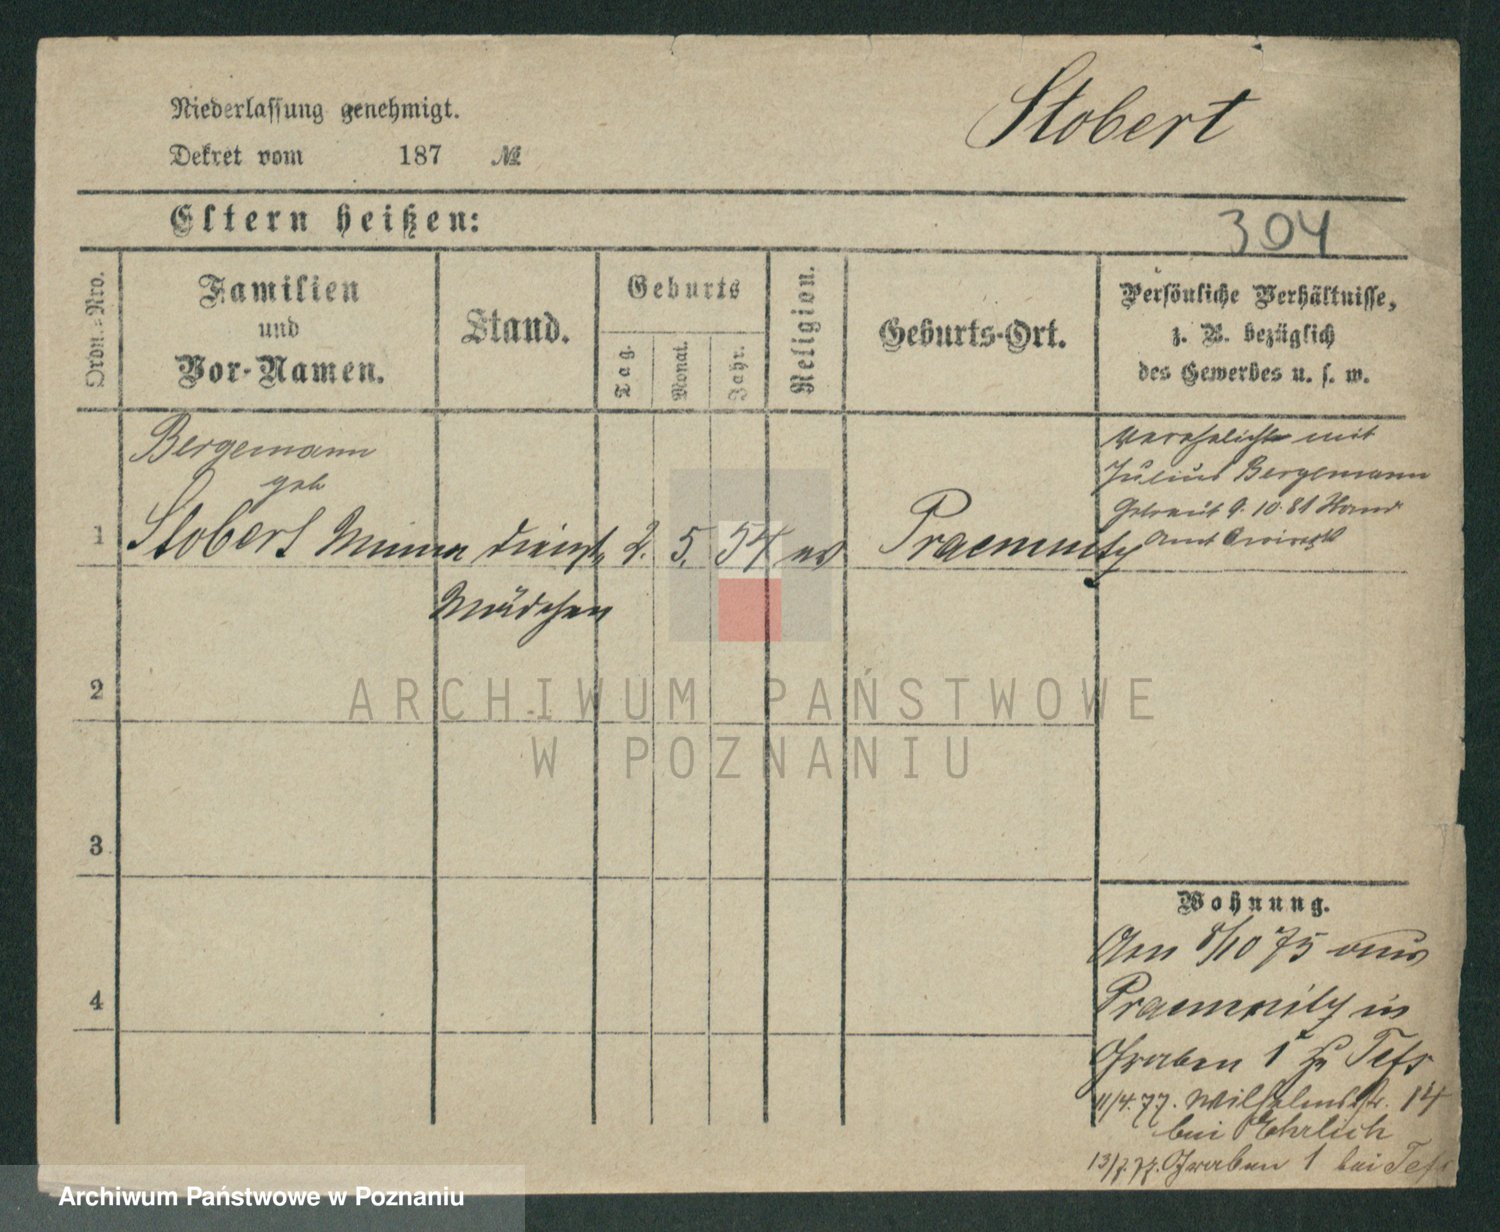 Niederlassung genehmigt.
Stobert
Dekret vom 187 №
Eltern heißen:
304
Ordn.-Nro.
Familien
und
Vor-Namen.
Stand.
Geburts
Tag.
Monat.
Jahr.
Religion.
Geburts-Ort.
Persönliche Verhältnisse,
z. B. bezüglich
des Gewerbes u. s. w.
Bergemann
geb
1 Stobert Minna Dienst, 2. 5. 54 ev
Mädchen
Verehelicht mit
Julius Bergemann
Getraut 9. 10. 81 Stand
Amt
2
3
4
Wohnung.
Den 8/10 75 aus
in
Graben 1 zu Tefs
11/4. 77. Wilhelmstr. 14
bei Ehrlich
13/7. 77. Graben 1 bei Tefs
ARCHIWUM PAŃSTWOWE
W POZNANIU
Archiwum Państwowe w Poznaniu